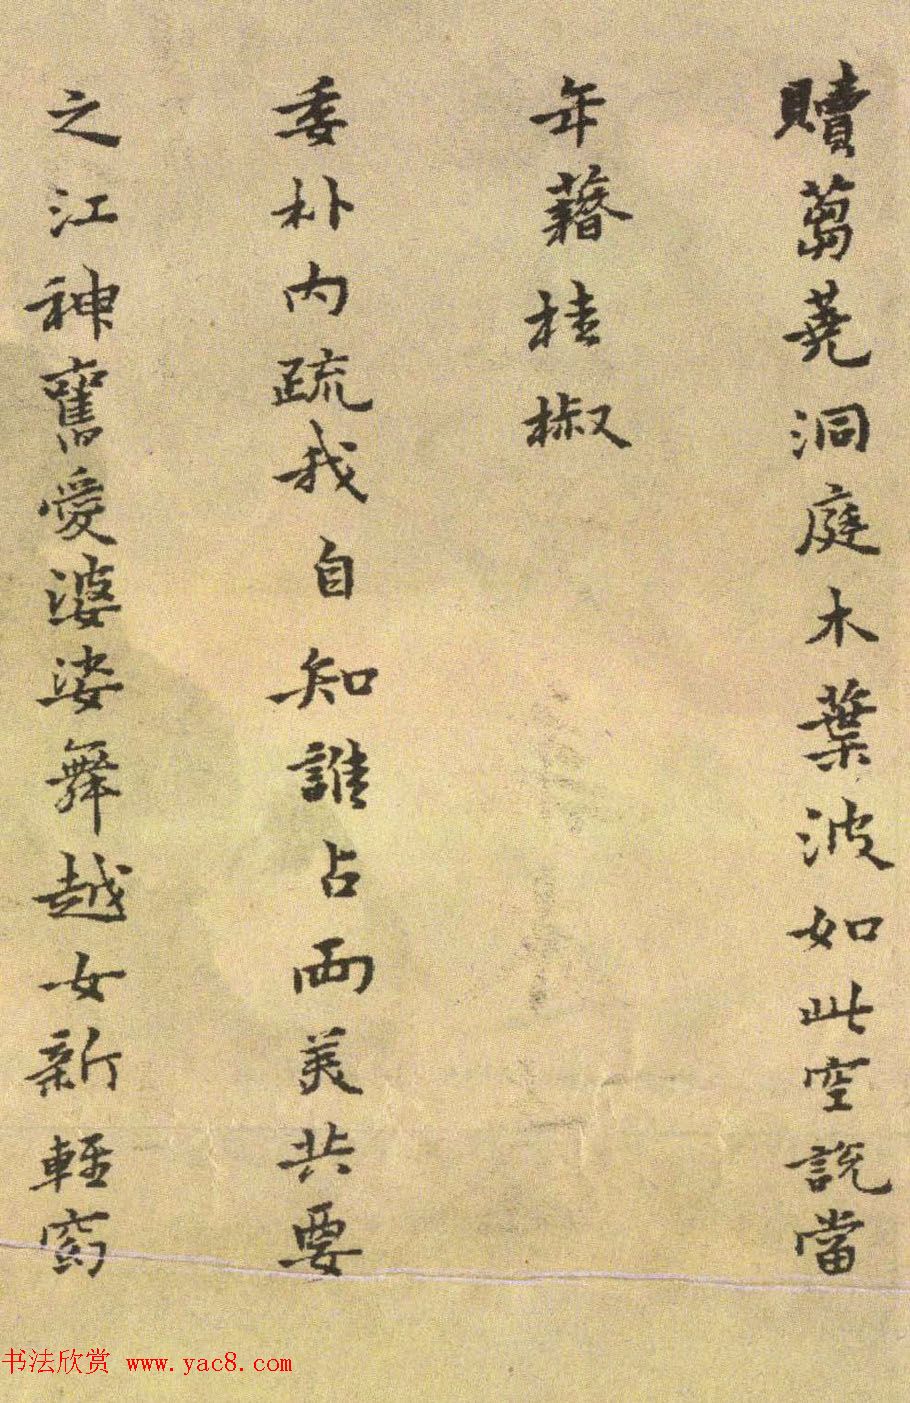 贖蒭蕘洞庭木葉波如此空說當
年藉桂椒
委朴內疏我自知誰占兩美共要
之江神舊愛婆娑舞越女新輕窈
书法欣赏 www.yac8.com